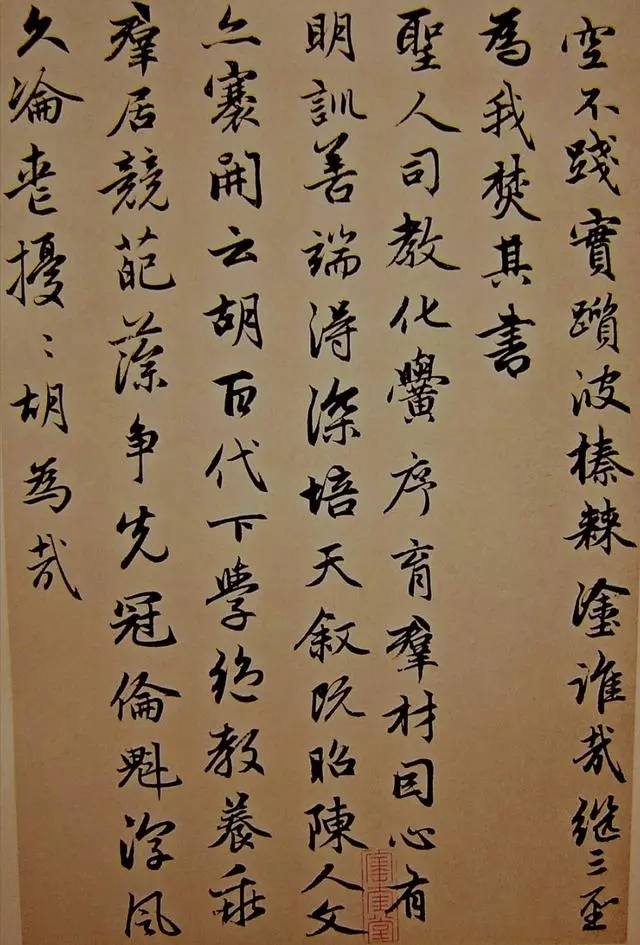 空不踐實躓彼榛棘塗誰哉繼三聖
為我焚其書
聖人司教化黌序育羣材因心有
明訓善端得深培天叙既昭陳人文
亦褰開云胡百代下學絶教養乖
羣居競葩藻争先冠倫魁淳風
久淪喪擾〻胡為哉